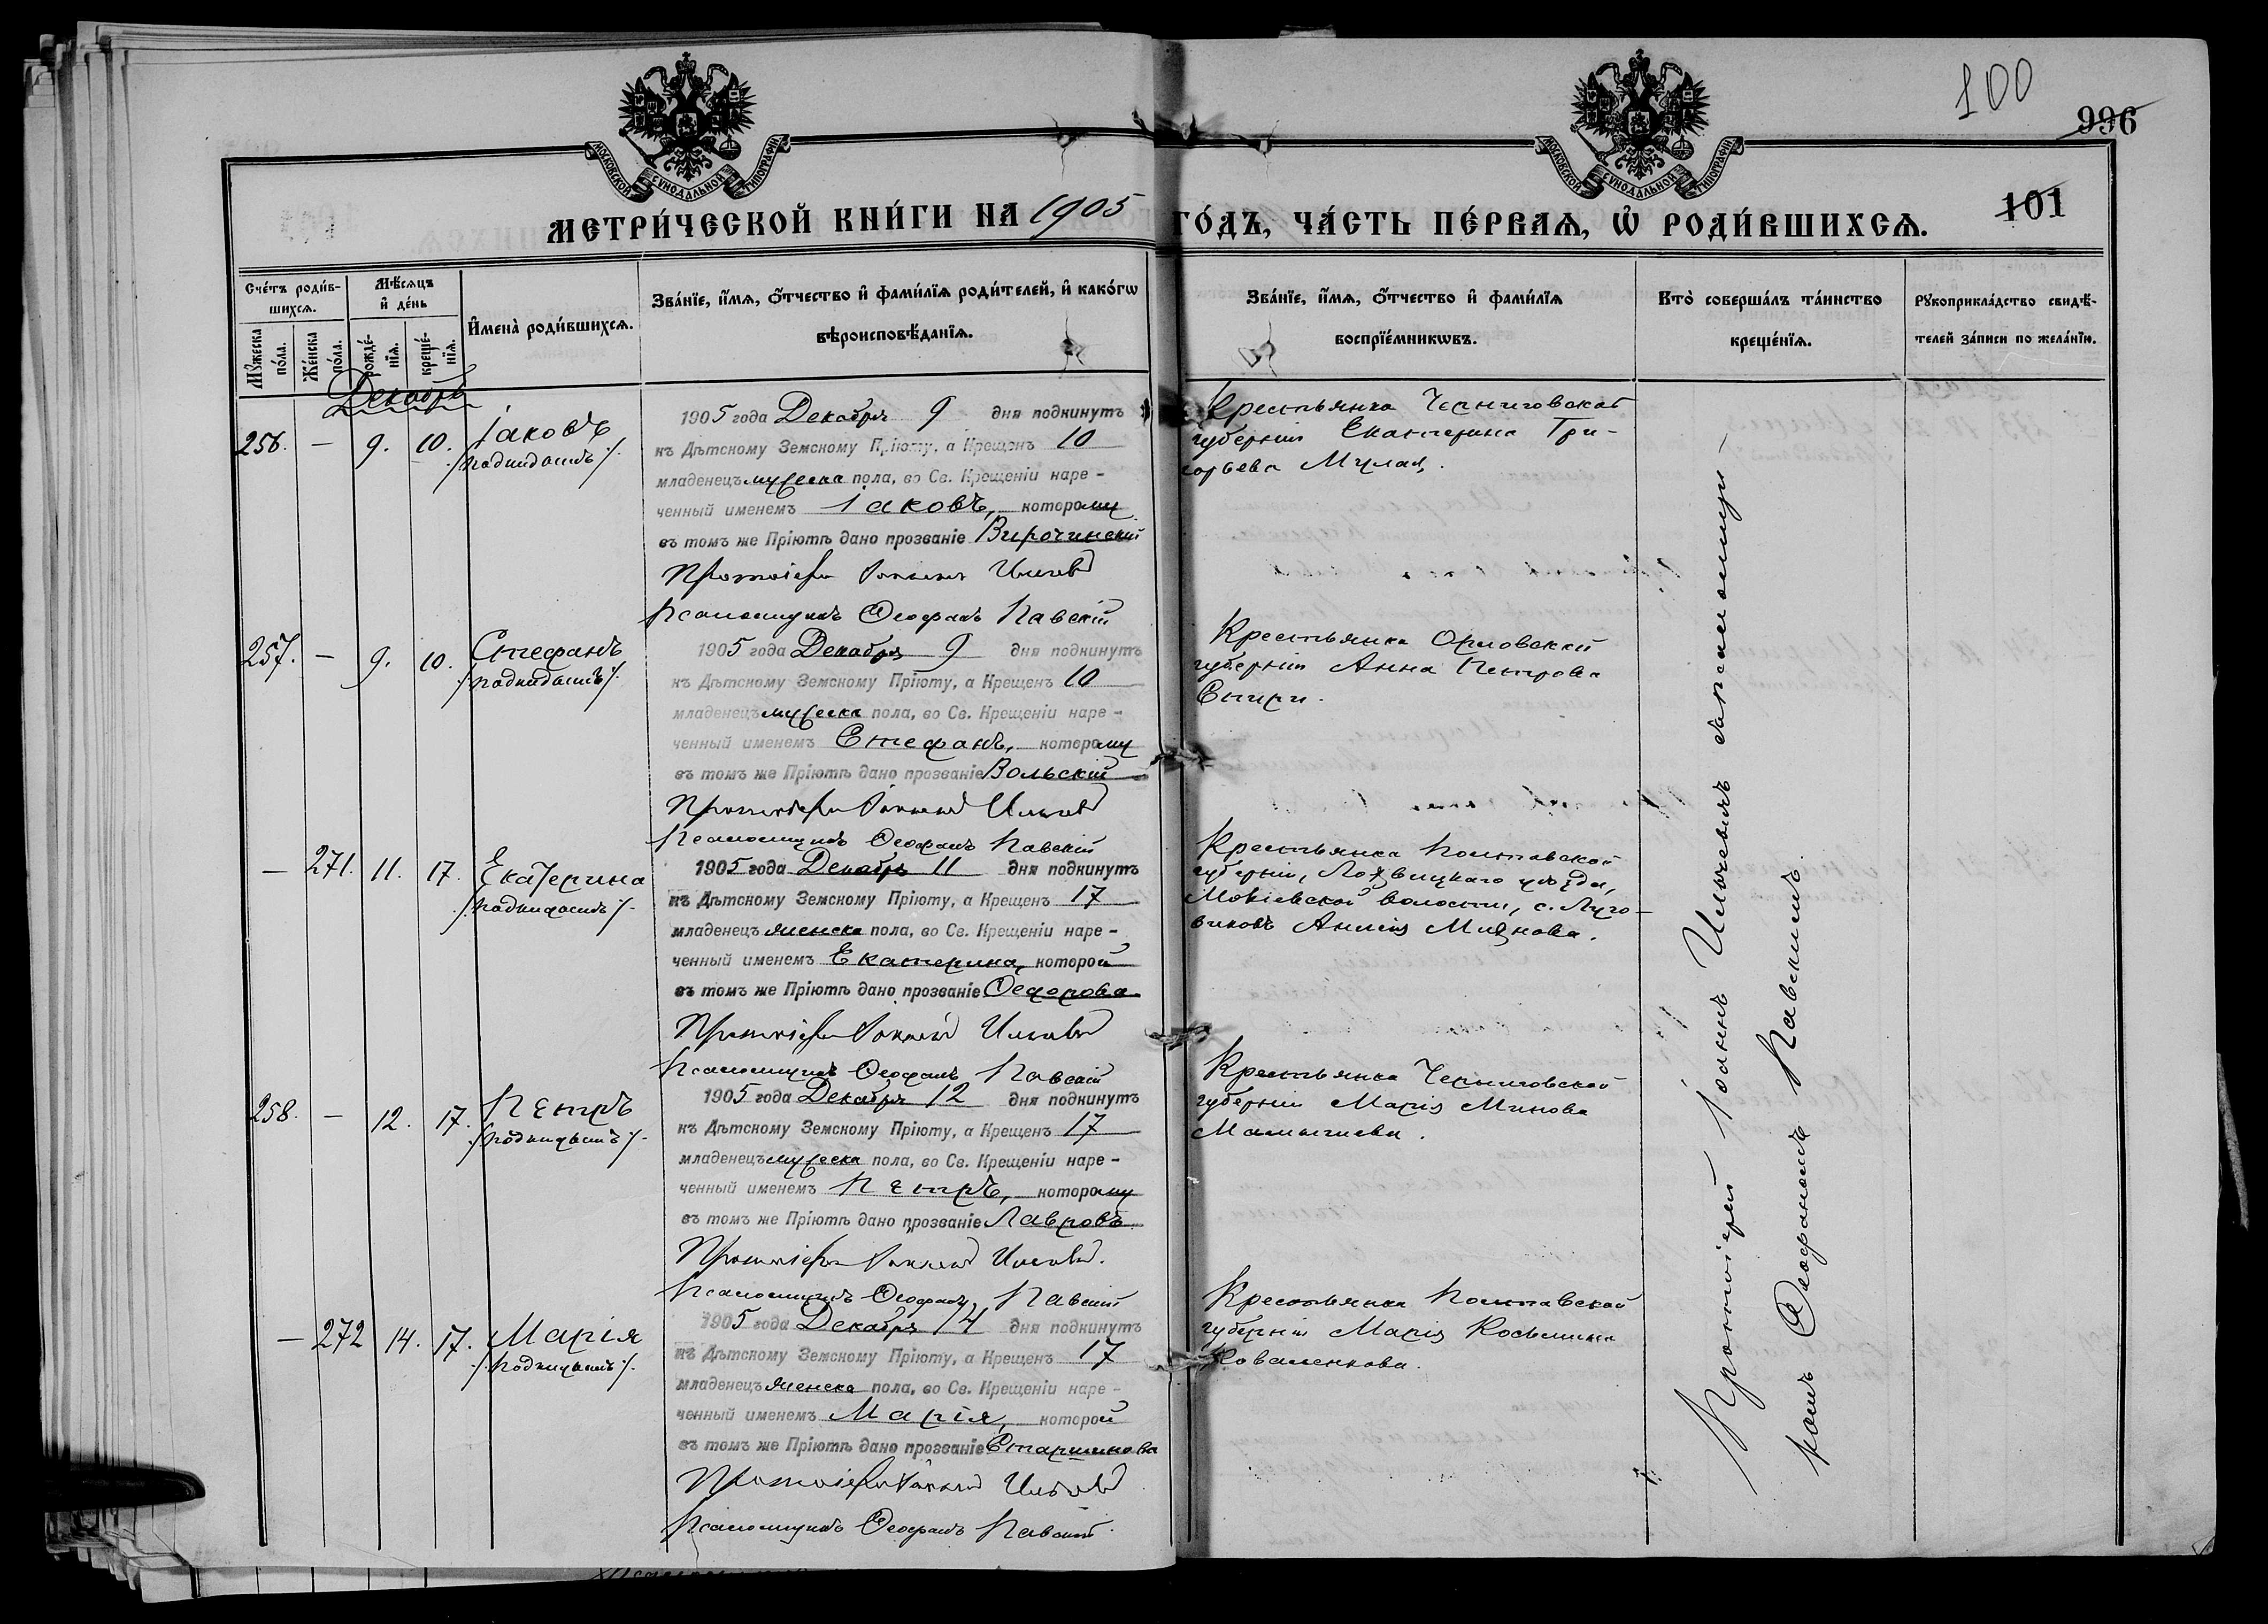 100
996
101
МОСКОВСКОЙ СѴНОДАЛЬНОЙ ТИПОГРАФІИ
МОСКОВСКОЙ СѴНОДАЛЬНОЙ ТИПОГРАФІИ
МЕТРИ́ЧЕСКОЙ КНИ́ГИ НА 1905 ГО́ДЪ, ЧА́СТЬ ПЕ́РВАѦ, Ѽ РОДИ́ВШИХСѦ.
Сче́тъ роди́в-
шихсѧ.
Мꙋ́жеска по́ла.
Же́нска по́ла.
Мѣ́сѧцъ
и҆ де́нь
рожде́-
нїѧ.
креще́-
нїѧ.
И҆мена̀ роди́вшихсѧ.
Зва́нїе, и҆́мѧ, ѻ҆́тчество и҆ фами́лїѧ роди́телей, и҆ како́гѡ
вѣроисповѣ́данїѧ.
Зва́нїе, и҆́мѧ, ѻ҆́тчество и҆ фами́лїѧ
воспрїе́мникѡвъ.
Кто̀ соверша́лъ та́инство
креще́нїѧ.
Рꙋкоприкла́дство свидѣ́-
телей за́писи по жела́нїю.
Декабрь
256. — 9. 10. Іаковъ
/подкидышъ/.
1905 года Декабря 9 дня подкинутъ
къ Дѣтскому Земскому Пріюту, а Крещенъ 10
младенецъ мужеска пола, во Св. Крещеніи наре-
ченный именемъ Іаковъ, которому
въ томъ же Пріютѣ дано прозваніе Вирочинский
Протоіерей Іоаннъ
Псаломщикъ Ѳеофанъ Павскій
Крестьянка Черниговской
губерніи Екатерина Гри-
горьева
257. — 9. 10. Стефанъ
/подкидышъ/.
1905 года Декабря 9 дня подкинутъ
къ Дѣтскому Земскому Пріюту, а Крещенъ 10
младенецъ мужеска пола, во Св. Крещеніи наре-
ченный именемъ Стефанъ, которому
въ томъ же Пріютѣ дано прозваніе Вольскій
Протоіерей Іоаннъ
Псаломщикъ Ѳеофанъ Павскій
Крестьянка Орловской
губерніи Анна Петрова
— 271. 11. 17. Екатерина
/подкидышъ/.
1905 года Декабря 11 дня подкинутъ
къ Дѣтскому Земскому Пріюту, а Крещенъ 17
младенецъ женска пола, во Св. Крещеніи наре-
ченный именемъ Екатерина, которой
въ томъ же Пріютѣ дано прозваніе Ѳедорова
Протоіерей Іоаннъ
Псаломщикъ Ѳеофанъ Павскій
Крестьянка Полтавской
губерніи, Лохвицкаго уѣзда,
волости, с. Луго-
виковъ
258. — 12. 17. Петръ
/подкидышъ/.
1905 года Декабря 12 дня подкинутъ
къ Дѣтскому Земскому Пріюту, а Крещенъ 17
младенецъ мужеска пола, во Св. Крещеніи наре-
ченный именемъ Петръ, которому
въ томъ же Пріютѣ дано прозваніе Лавровъ
Протоіерей Іоаннъ
Псаломщикъ Ѳеофанъ Павскій
Крестьянка Черниговской
губерніи Марія Минова
— 272 14. 17. Марія
/подкидышъ/.
1905 года Декабря 14 дня подкинутъ
къ Дѣтскому Земскому Пріюту, а Крещенъ 17
младенецъ женска пола, во Св. Крещеніи наре-
ченный именемъ Марія, которой
въ томъ же Пріютѣ дано прозваніе Старшинова
Протоіерей Іоаннъ
Псаломщикъ Ѳеофанъ Павскій
Крестьянка Полтавской
губерніи Марія Косьмина
Коваленкова.
Протоіерей Іоаннъ съ псаломщи-
комъ Ѳеофаномъ Павскимъ.